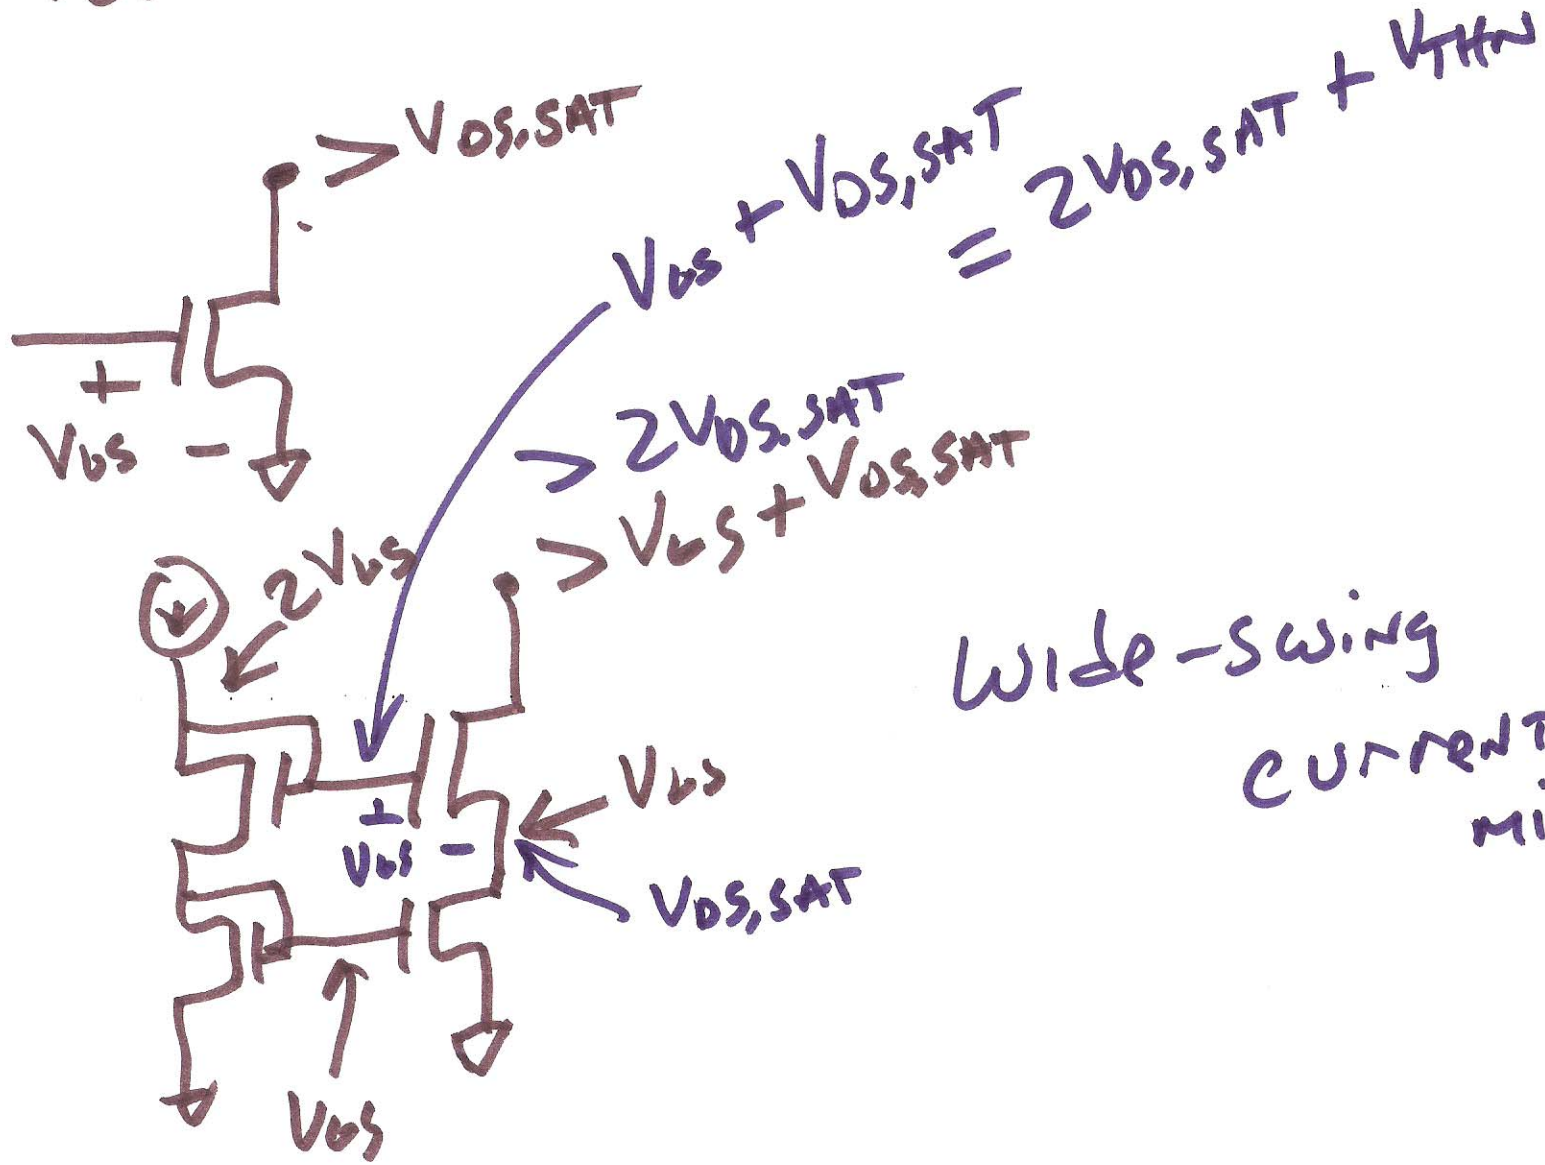 > VDS,SAT
VGS + VDS,SAT
= 2VDS,SAT + VTHN
+
VGS -
> 2VDS,SAT
> VGS + VDS,SAT
2VGS
Wide-swing
current
mi
VGS
+
VGS -
VDS,SAT
VGS